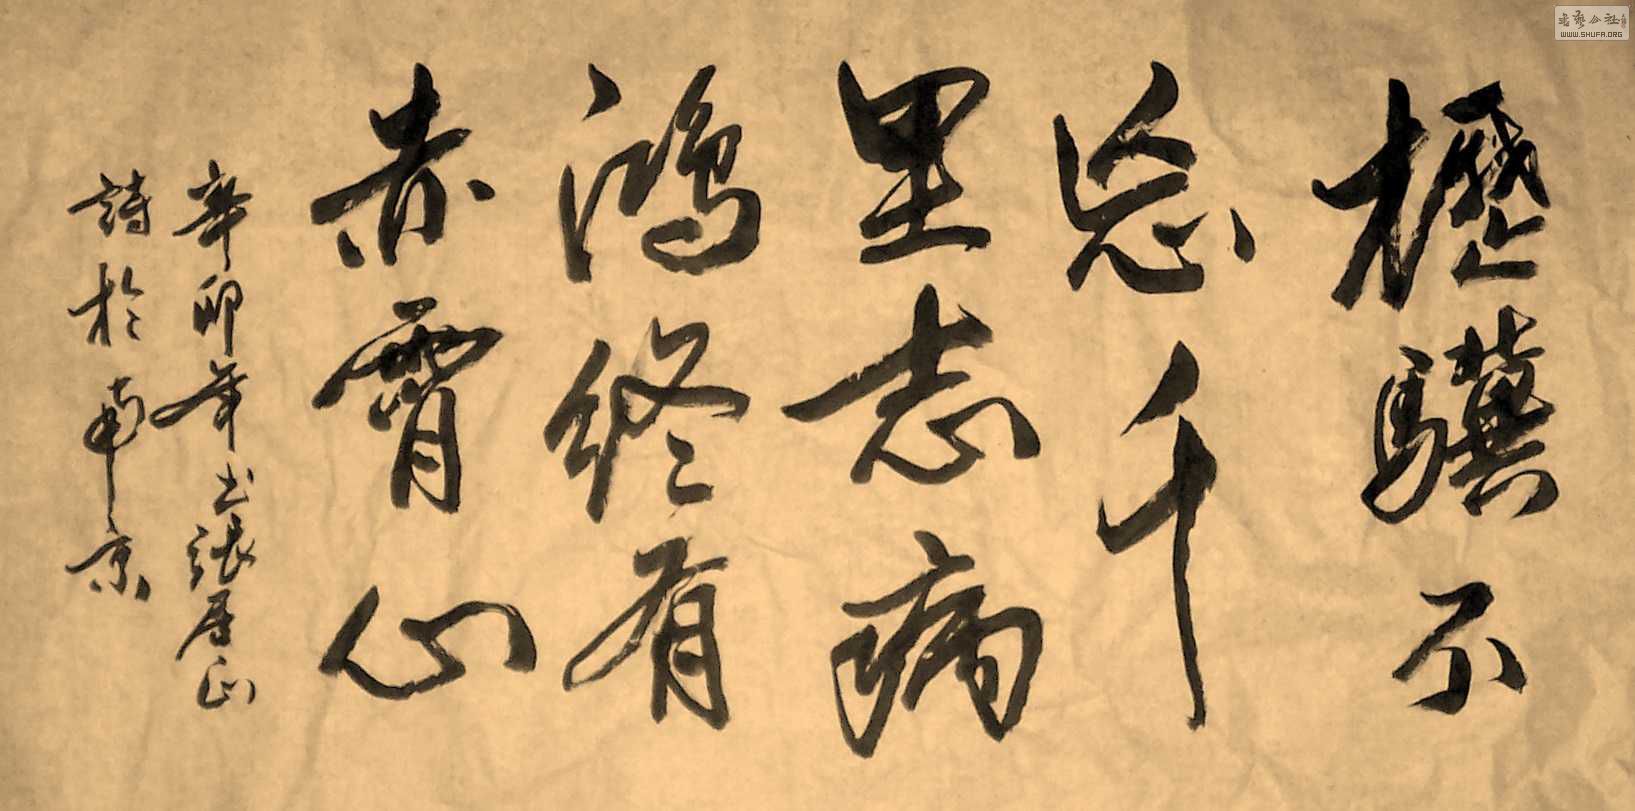 櫪驥不
忘千
里志病
鴻終有
赤霄心
辛卯年書張居正
詩於南京
WWW.SHUFA.ORG